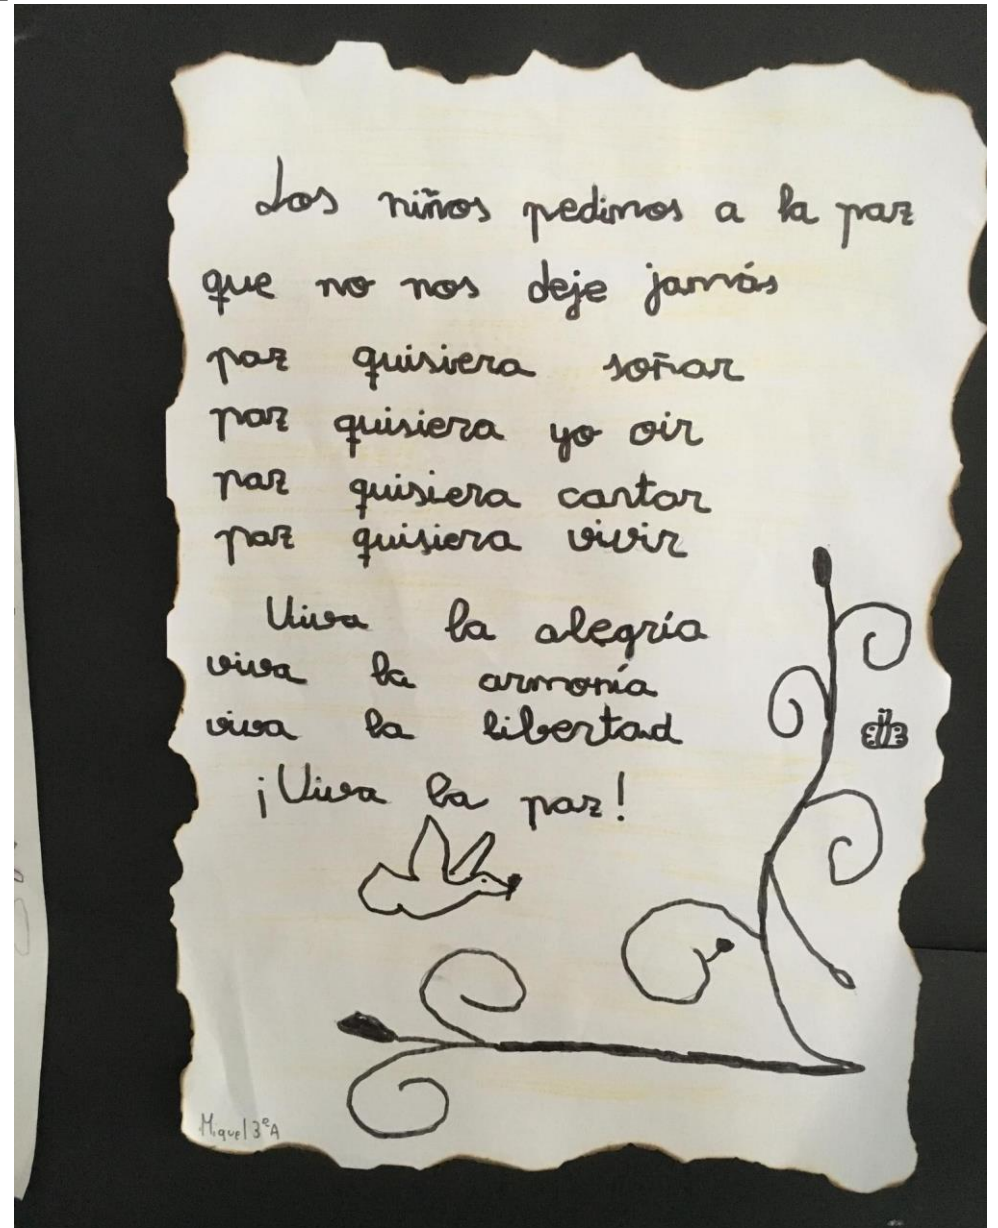 Los niños pedimos a la paz
que no nos deje jamás
paz quisiera soñar
paz quisiera yo oir
paz quisiera cantar
paz quisiera vivir
Viva la alegría
viva la armonía
viva la libertad
¡Viva la paz!
Miguel 3ºA